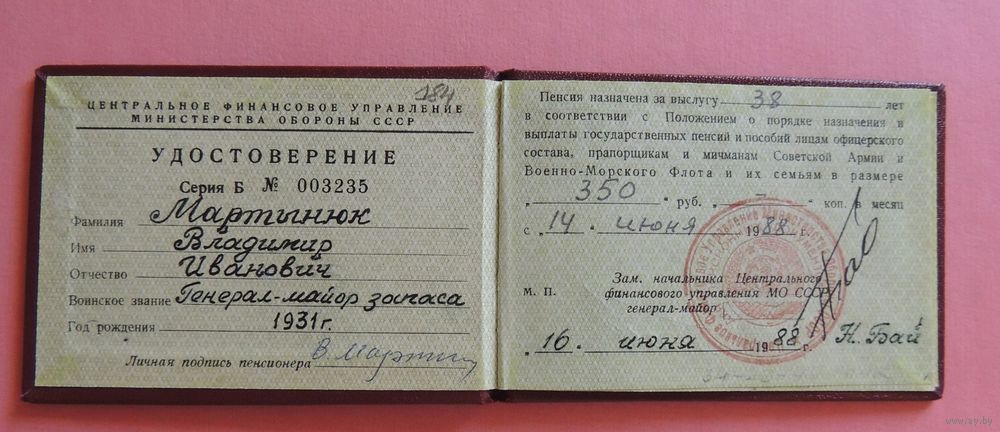 184
ЦЕНТРАЛЬНОЕ ФИНАНСОВОЕ УПРАВЛЕНИЕ
МИНИСТЕРСТВА ОБОРОНЫ СССР
УДОСТОВЕРЕНИЕ
Серия Б № 003235
Фамилия Мартынюк
Имя Владимир
Отчество Иванович
Воинское звание Генерал-майор запаса
Год рождения 1931 г.
Личная подпись пенсионера В. Мартын
Пенсия назначена за выслугу 38 лет
в соответствии с Положением о порядке назначения и
выплаты государственных пенсий и пособий лицам офицерского
состава, прапорщикам и мичманам Советской Армии и
Военно-Морского Флота и их семьям в размере
„ 350 " руб. „ — " коп. в месяц
с „ 14 " июня 1988 г.
Зам. начальника Центрального
м. п. финансового управления МО СССР
генерал-майор
„ 16 " июня 1988 г. Н. Бай
www.ay.by